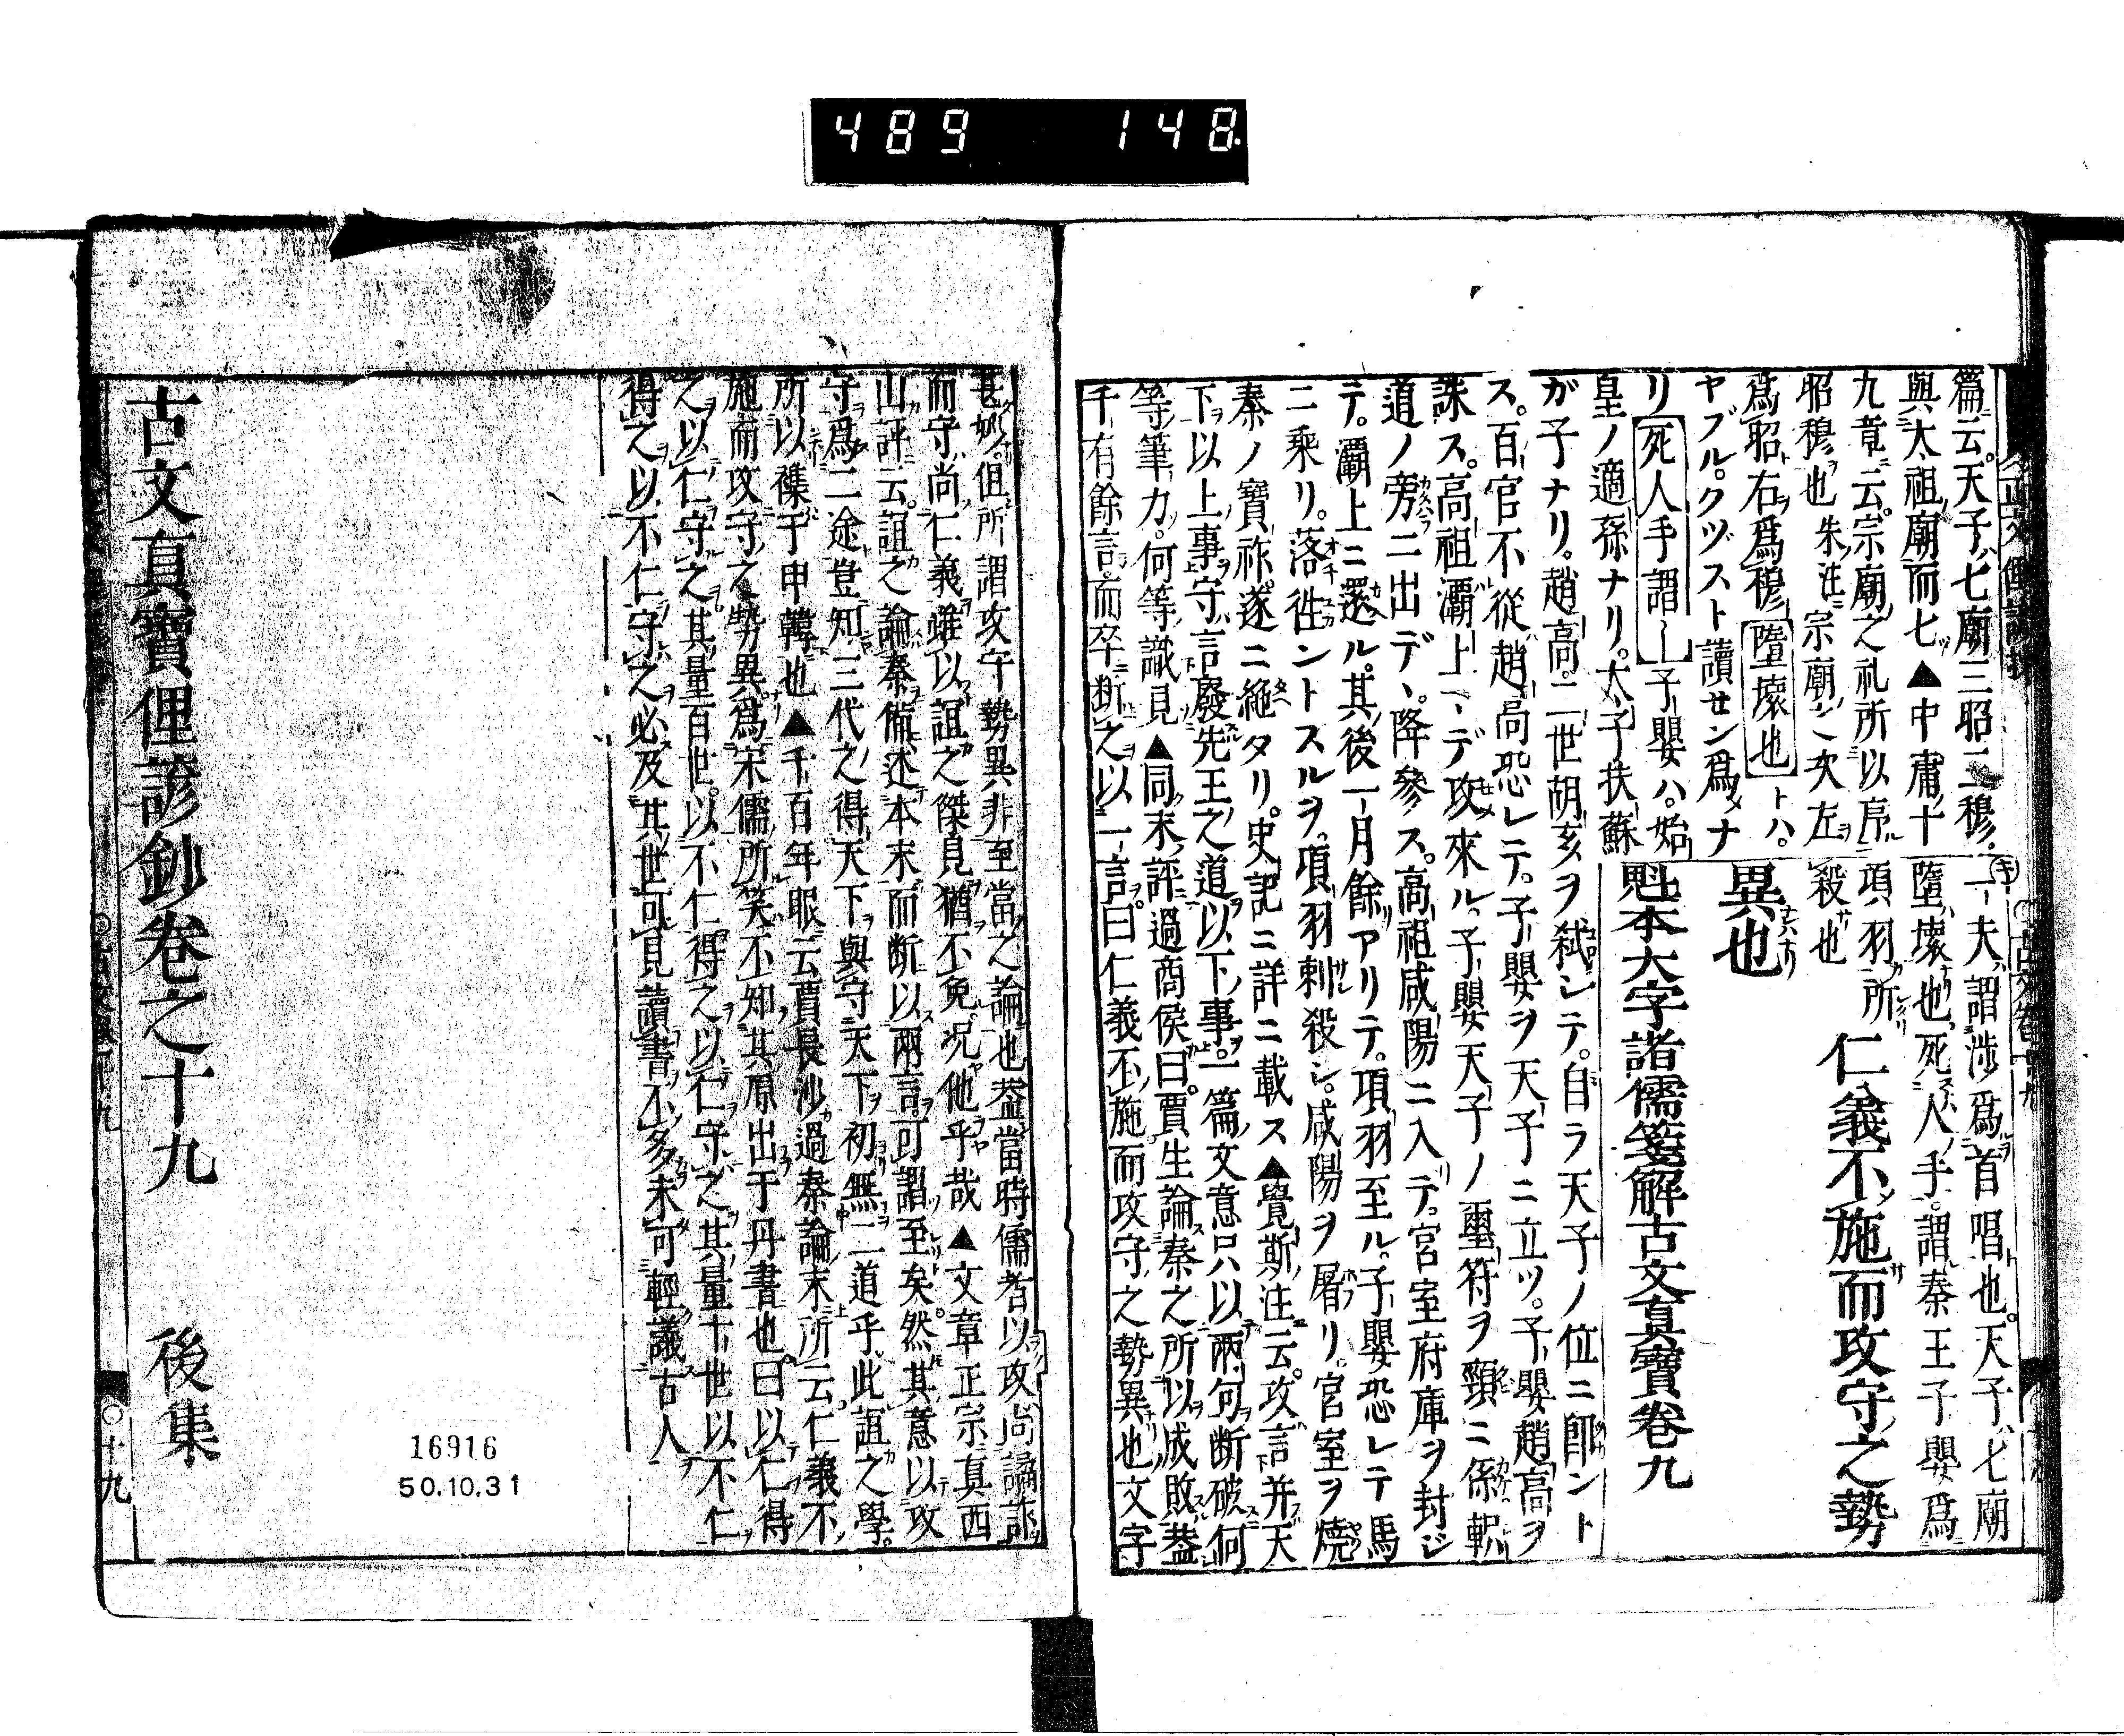 489 148
篇ニ云。天子ハ七廟三昭二穆
與太祖廟而七▲中庸ノ十
九章ニ云。宗廟之礼所以序
昭穆ヲ也 朱注ニ宗廟之次左ヲ
爲昭右ヲ爲穆 墮壞也トハ。
ヤブルクヅスト讀セン爲メナ
リ 死人手謂― 子嬰ハ。始
皇ノ適孫ナリ。太子扶蘇
一夫ハ謂渉爲首唱也。天子ハ七廟
墮壞也死人ノ手。謂秦王子嬰爲
項羽所
殺也
仁義不施而攻守之勢
異也
魁本大字諸儒箋解古文眞寶卷九
ガ子ナリ。趙高。二世胡亥ヲ弑シテ。自ラ天子ノ位ニ即ント
ス。百官不從。趙高恐レテ。子嬰ヲ天子ニ立ツ。子嬰趙高ヲ
誅ス。高祖灞上マデ攻來ル。子嬰天子ノ璽符ヲ頸ニ係軹
道ノ旁ニ出デヽ降參ス。高祖咸陽ニ入テ。宮室府庫ヲ封ジ
テ。灞上ニ還ル。其後一月餘アリテ。項羽至ル。子嬰恐レテ馬
ニ乘リ。落徃ントスルヲ。項羽刺殺シ。咸陽ヲ屠リ。宮室ヲ燒
秦ノ寶祚。遂ニ絶タリ。史記ニ詳ニ載ス▲覺斯注云。攻言并天
下ヲ以上事守ハ言廢先王之道以下事。一篇文意只以兩句斷破何
等筆力。何等識見▲同末評過商侯曰。賈生論秦之所以成敗蓋
千有餘言而卒斷之以一言曰仁義不施而攻守之勢異也文字
甚妙但所謂攻守勢異非至當之論也蓋當時儒者以攻尚譎詐
而守尚仁義雖以誼之傑見猶不免况他乎哉▲文章正宗眞西
山評云。誼之論秦備述本末而斷以兩言可謂至矣。然其意以攻
守爲二途豈知三代之得天下與守天下初無二道乎。此誼之學。
所以襍于申韓也▲千百年眼云賈長沙過秦論末所云仁義不
施而攻守之勢異爲宋儒所笑不知其原出于丹書也曰以仁得
之以仁守之其量百世以不仁得之以仁守之其量十世以不仁
得之以不仁守之必及其世可見讀書不多未可輕議古人
古文眞寶俚諺鈔卷之十九 後集
十九
16916
50.10.31